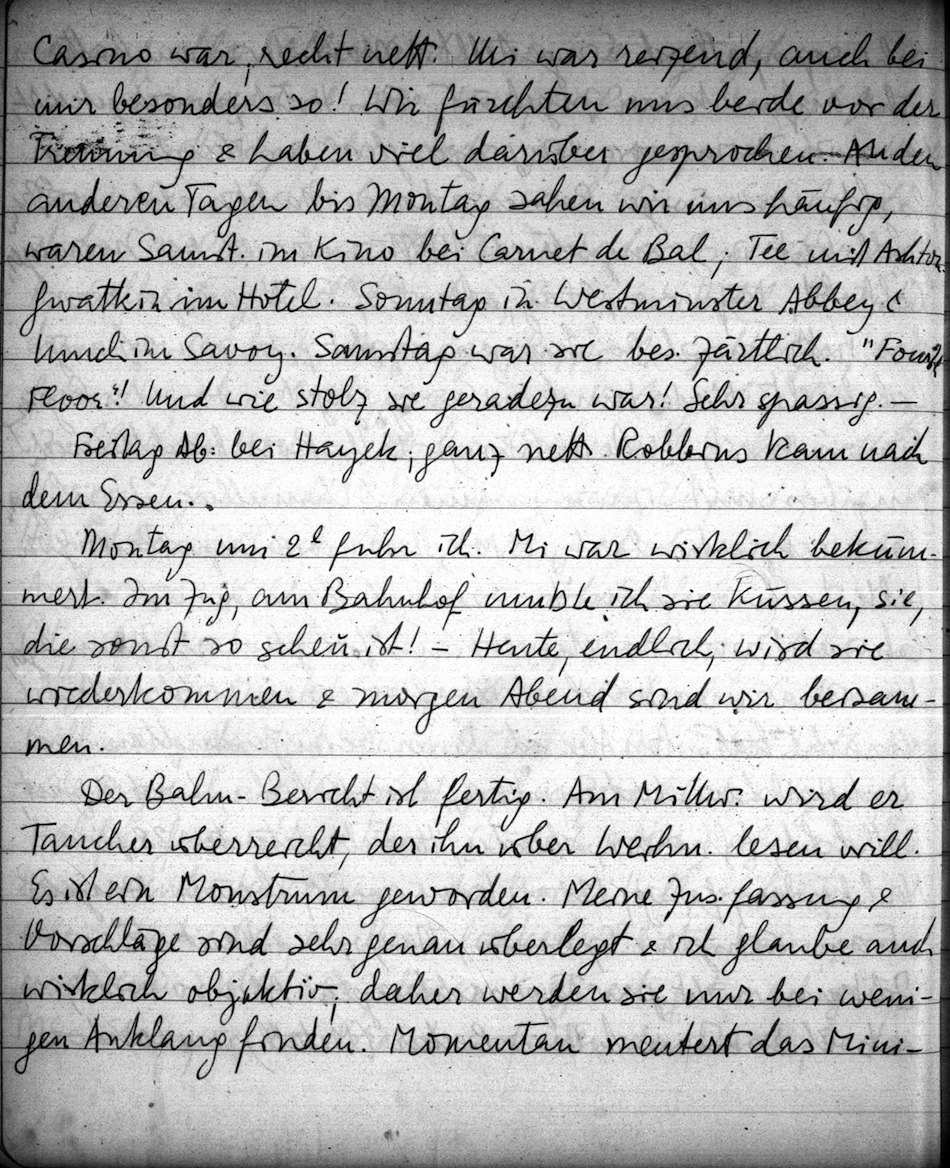 Casino war, recht nett. Mi war reizend, auch bei
mir besonders so! Wir fürchten uns beide vor der
Trennung & haben viel darüber gesprochen. An den
anderen Tagen bis Montag sahen wir uns häufig,
waren Samst. im Kino bei Carnet de Bal; Tee mit Ashton
Gwatkin im Hotel. Sonntag in Westminster Abbey &
Lunch im Savoy. Samstag war sie bes. zärtlich. "Fourth
Floor"! Und wie stolz sie geradezu war! Sehr spassig. —
Freitag Ab: bei Hayek; ganz nett. Robbins kam nach
dem Essen.
Montag um 2h fuhr ich. Mi war wirklich beküm-
mert. Im Zug, am Bahnhof mußte ich sie küssen, sie,
die sonst so scheu ist! – Heute, endlich, wird sie
wiederkommen & morgen Abend sind wir beisam-
men.
Der Bahn-Bericht ist fertig. Am Mittw. wird er
Taucher überreicht, der ihn über Weihn. lesen will.
Es ist ein Monstrum geworden. Meine Zus.fassung &
Vorschläge sind sehr genau überlegt & ich glaube auch
wirklich objektiv; daher werden sie nur bei weni-
gen Anklang finden. Momentan meutert das Mini-